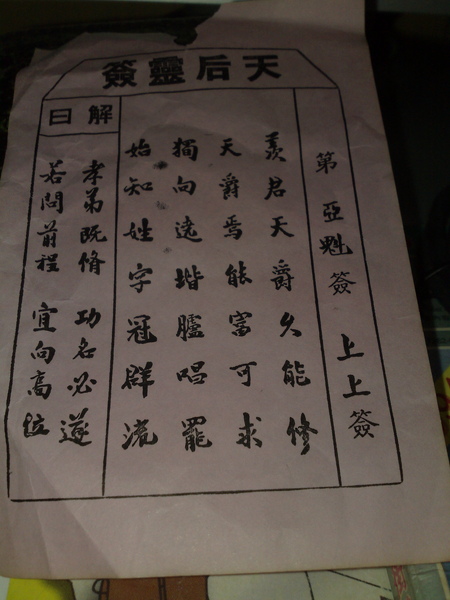 天后靈簽
第亞魁簽 上上簽
羨君天爵久能修
天爵焉能富可求
獨向遠堦臚唱罷
始知姓字冠群流
解曰
孝弟既脩 功名必遂
若問前程 宜向高位